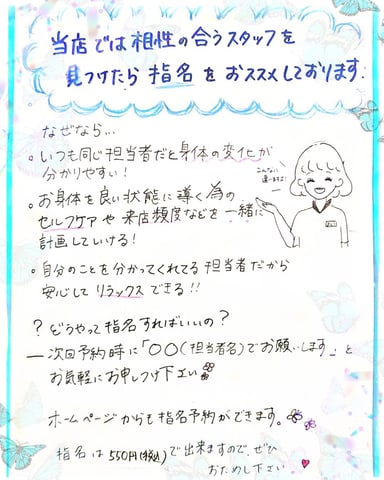 当店では相性の合うスタッフを
見つけたら指名をおススメしております。
なぜなら...
・いつも同じ担当者だと身体の変化が
分かりやすい!
・お身体を良い状態に導く為の
セルフケアや来店頻度などを一緒に
計画していける!
こんなに
違いますよ!
・自分のことを分かってくれてる担当者だから
安心してリラックスできる!!
? どうやって指名すればいいの?
― 次回予約時に「〇〇(担当者名)でお願いします」と
お気軽にお申しつけ下さい
ホームページからも指名予約ができます。
指名は550円(税込)で出来ますので、ぜひ
おためし下さい。